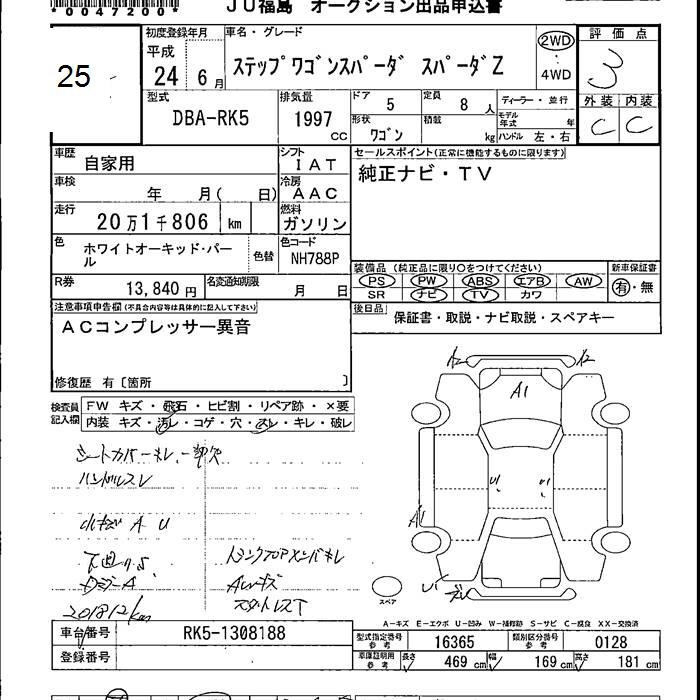 *0047200*
JU福島 オークション出品申込書
25
初度登録年月
平成
24年 6月
車名・グレード
ステップワゴンスパーダ スパーダZ
2WD
4WD
評価点
3
外装 内装
C C
型式
DBA-RK5
排気量
1997
CC
ドア
5
定員
8人
形状
ワゴン
積載
kg
ディーラー・並行
モデル年式
年
ハンドル 左・右
車歴
自家用
シフト
IAT
車検
年 月( 日)
冷房
AAC
走行
20万1千806 km
燃料
ガソリン
色
ホワイトオーキッド・パール
色替
色コード
NH788P
R券
13,840円
名変通知期限
月 日
セールスポイント(正常に機能するものに限ります)
純正ナビ・TV
装備品(純正品に限り○をつけてください)
PS PW ABS エアB AW
SR ナビ TV カワ
新車保証書
有・無
後日品
保証書・取説・ナビ取説・スペアキー
注意事項申告欄(不具合内容等は具体的に記入して下さい)
ACコンプレッサー異音
修復歴 有〔箇所 〕
検査員記入欄
FW キズ・飛石・ヒビ割・リペア跡・×要
内装 キズ・汚レ・コゲ・穴・スレ・キレ・破レ
シートカバーキレ、一部欠
ハンドルスレ
小キズ A U
下廻りS
トランクフロアメンバキレ
ALキズ
201812km
A2 A2
A1
A1
スペア
A-キズ E-エクボ U-凹み W-補修跡 S-サビ C-腐食 XX-交換済
車台番号
RK5-1308188
登録番号
型式指定番号
参考
16365
類別区分番号
参考
0128
車庫証明用
参考
長さ
469cm
幅
169cm
高さ
181cm